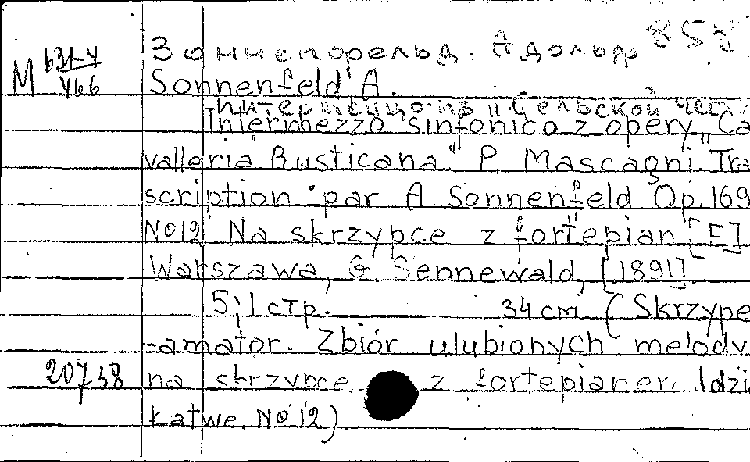 Зонненфельд. Адольф 858
М 631-4/466
Sonnenfeld A.
Интермеццо из "Сельской чес
Intermezzo sinfonico z opery "Ca
valleria Rusticana" P. Mascagni. Tra
scription par A. Sonnenfeld Op.169
№12 Na skrzypce z fortepian [E]
Warszawa, G. Sennewald, [1891].
5;1 стр. 34 см (Skrzype
-amator. Zbiór ulubionych melody
20738 na skrzypce z fortepianer.
Łatwe. №12)